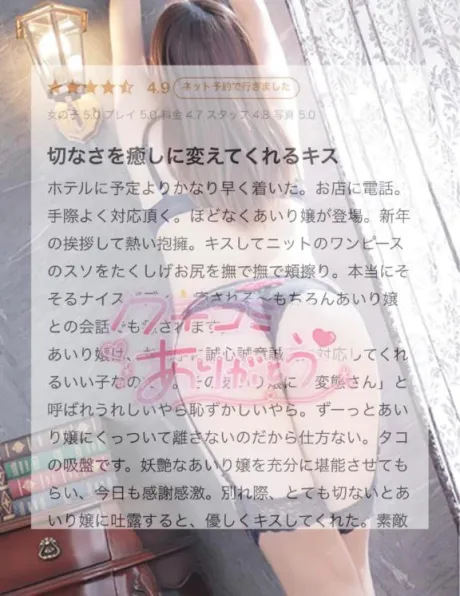 ★★★★★ 4.9 ネット予約で行きました
女の子 5.0 プレイ 5.0 料金 4.7 スタッフ 4.8 写真 5.0
切なさを癒しに変えてくれるキス
ホテルに予定よりかなり早く着いた。お店に電話。
手際よく対応頂く。ほどなくあいり嬢が登場。新年
の挨拶して熱い抱擁。キスしてニットのワンピース
のスソをたくしげお尻を撫で撫で頬擦り。本当にそ
そるナイス される〜もちろんあいり嬢
との会話でも されます。
クチコミ
ありがとう
あいり嬢は、 に誠心誠意 対応してくれ
るいい子なの 嬢に「変態さん」と
呼ばれうれしいやら恥ずかしいやら。ずーっとあい
り嬢にくっついて離さないのだから仕方ない。タコ
の吸盤です。妖艶なあいり嬢を充分に堪能させても
らい、今日も感謝感激。別れ際、とても切ないとあ
いり嬢に吐露すると、優しくキスしてくれた。素敵